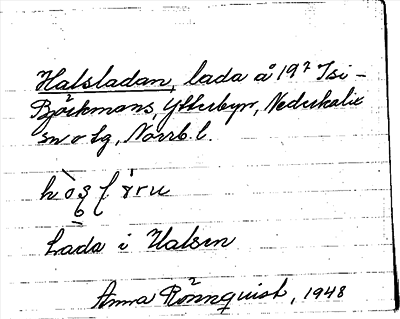 Halsladan, lada å 19² Isi-
Björkmans, Ytterbyn, Nederkalix
sn o tg, Norrb. l.
Lada i Halsen
Anna Rönnquist, 1948